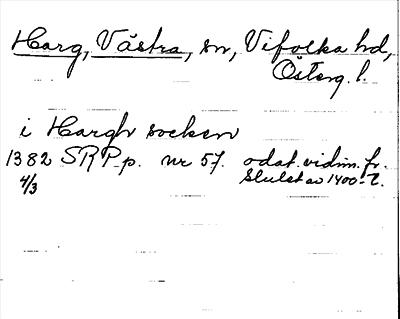 Harg, Västra, sn, Vifolka hd,
Österg. l.
i Hargh socken
1382 SRP p. nr 57. odat. vidim. fr.
4/3 slutet av 1400-t.